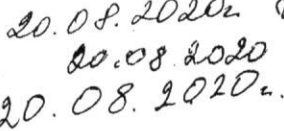 20.08.2020г
20.08.2020
20.08.2020г.